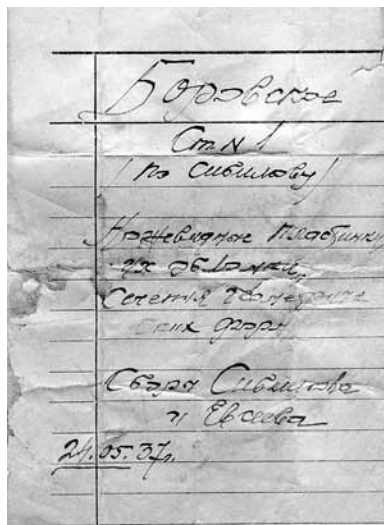 Боровское
Ст. N 1
(по Сибилеву)
Ножевидные пластинки,
их обломки,
Сечения геометриче
ских форм
Сборы Сибилева
и Евсеева
24.05.37г.